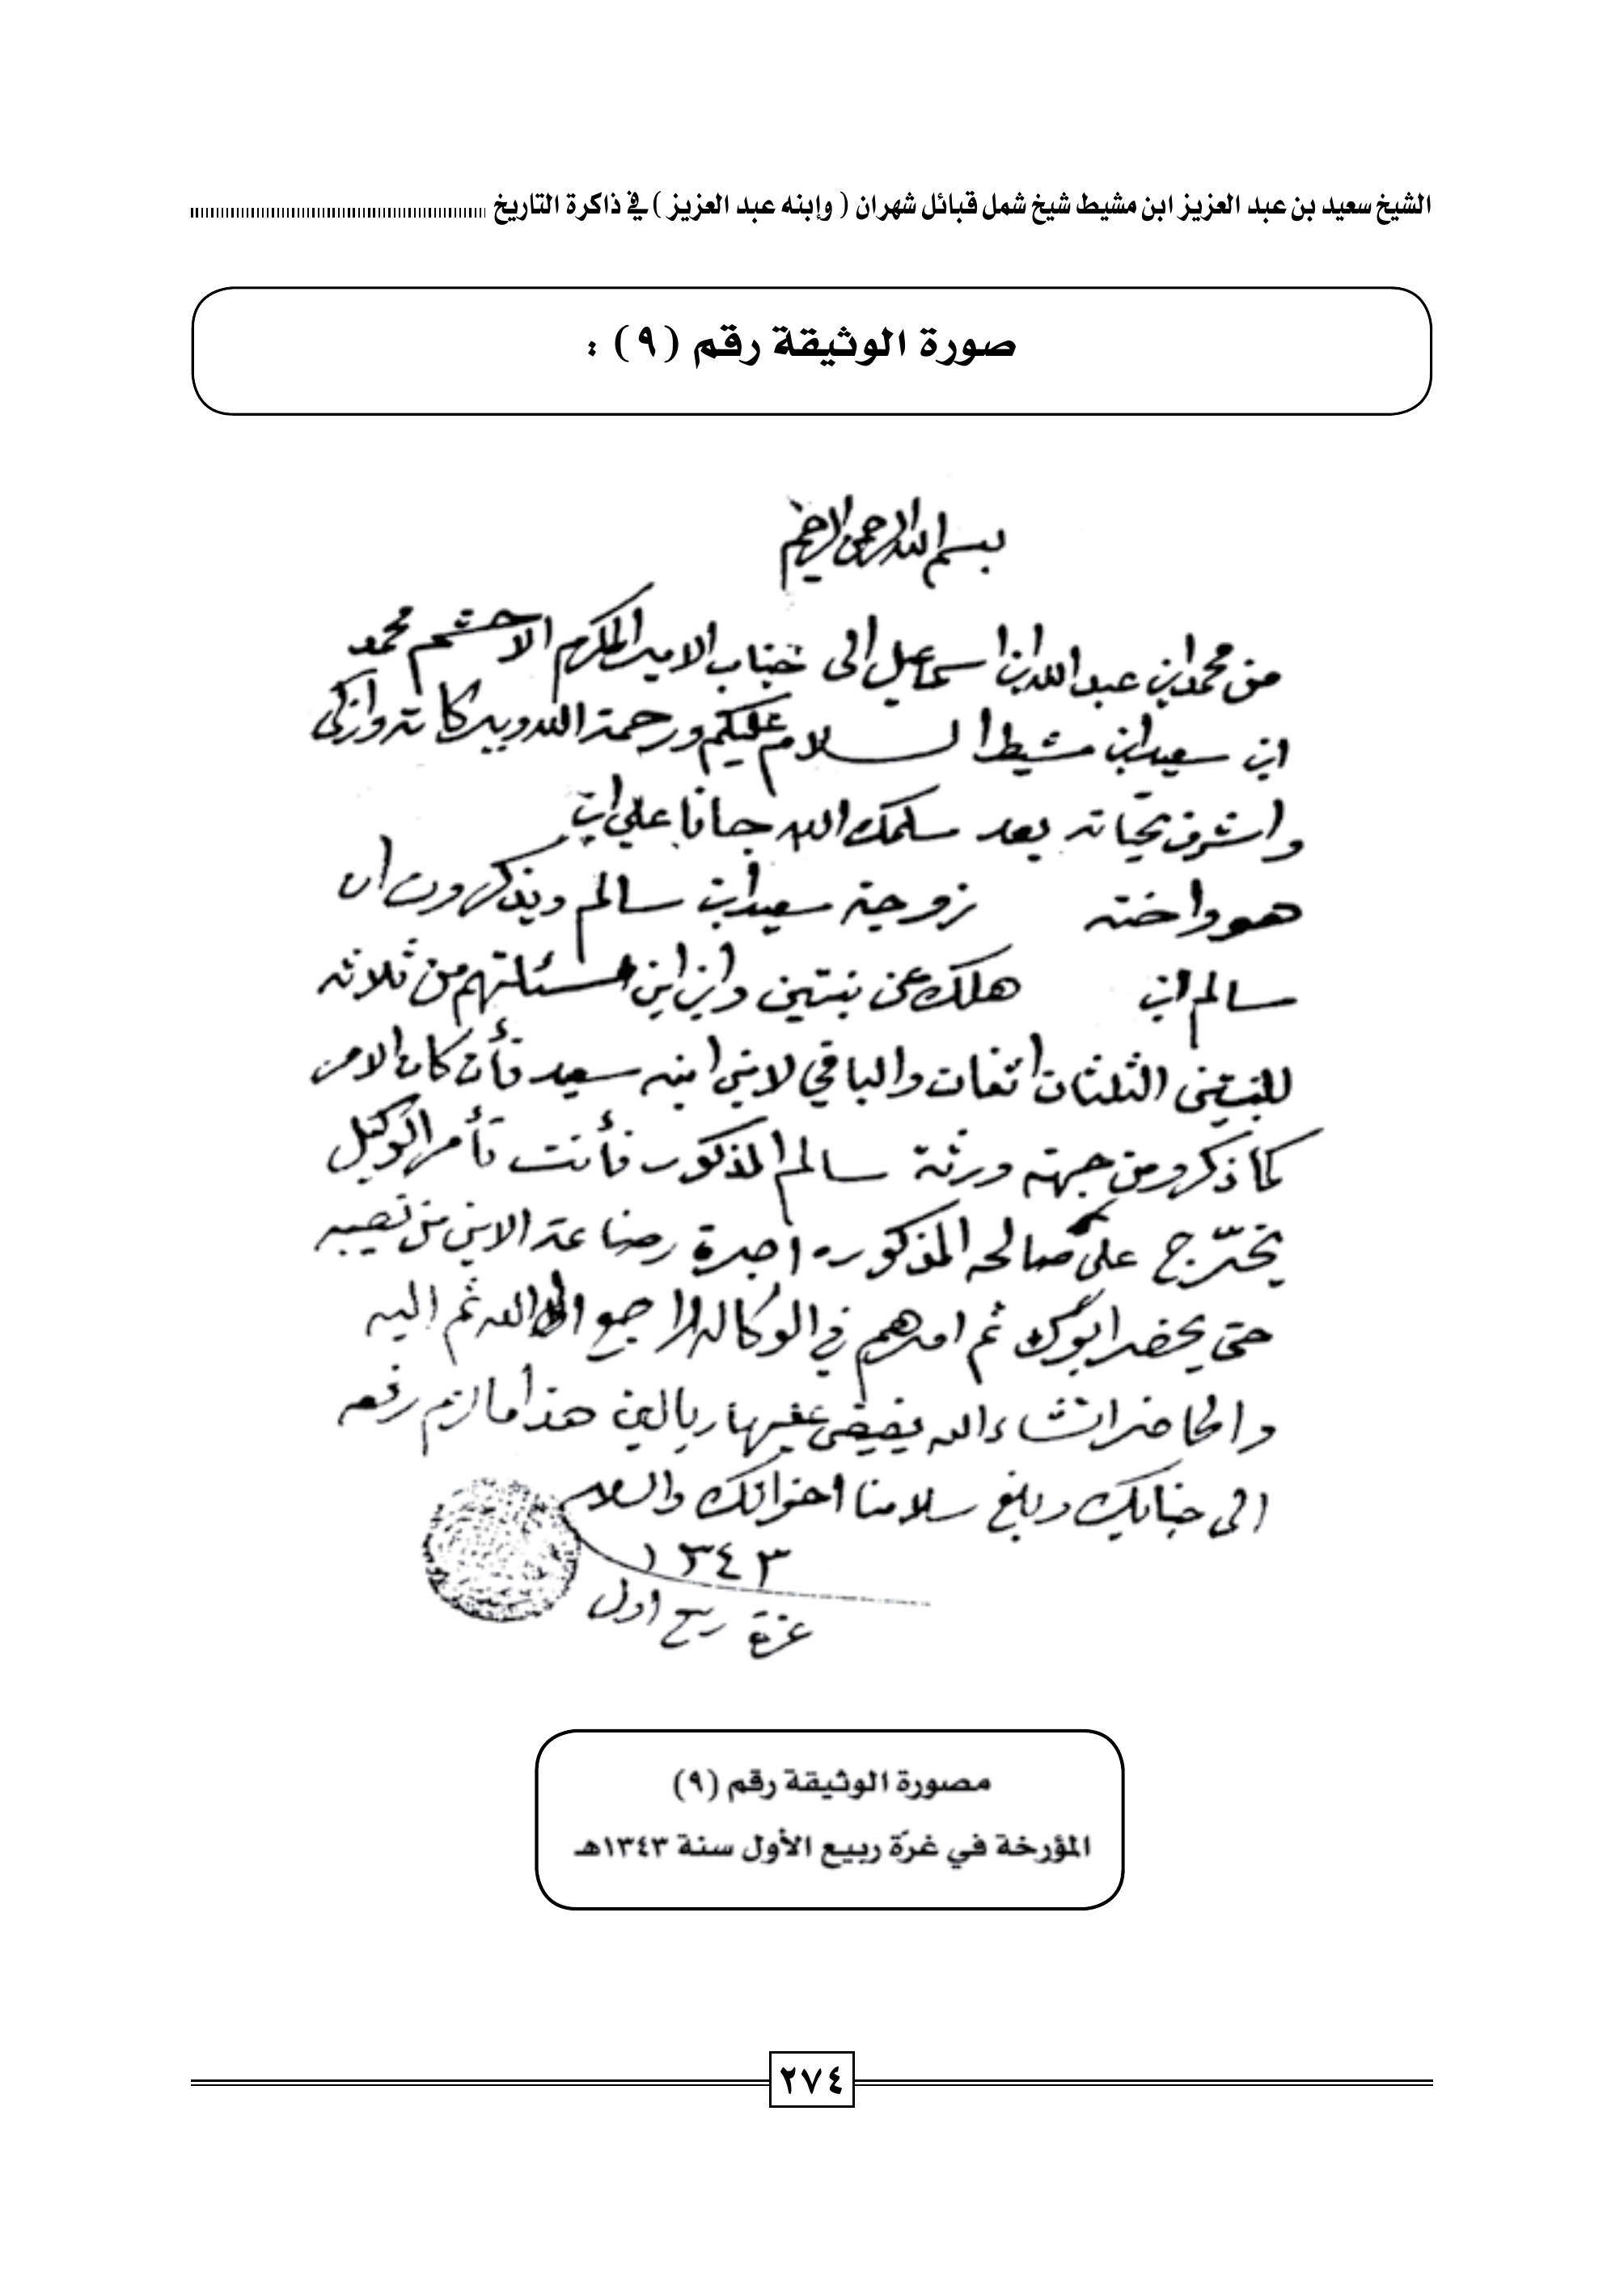 الشيخ سعيد بن عبد العزيز ابن مشيط شيخ شمل قبائل شهران ( وإبنه عبد العزيز ) في ذاكرة التاريخ
صورة الوثيقة رقم (٩) :
بسم الله الرحمن الرحيم
من محمد ابن عبد الله ابن اسماعيل الى جناب الامير المكرم الاحشم محمد
ابن سعيد ابن مشيط السلام عليكم ورحمة الله وبركاته وازكى
واشرف تحياته بعد سلمك الله جانا علي ابن
هو واخته زوجة سعيد ابن سالم ويذكرون ان
سالم ابن هلك عن بنتين وابن ابن مسئلتهم من ثلاثه
للبنتين الثلثان اثنان والباقي لابن ابنه سعيد فأن كان الامر
كما ذكر ومن جهة ورثة سالم المذكور فأنت تأمر الوكيل
يخرّج على صالحه المذكوره اجرة رضاعة الابن من نصيبه
حتى يحضر ابوك ثم امرهم في الوكاله راجع الى الله ثم اليه
والحاضر انشاء الله يفيض عليها ريالين هذا ما لزم رفعه
الى جنابك وبلغ سلامنا اخوانك والسلام
١٣٤٣
غرة ربيع اول
مصورة الوثيقة رقم (٩)
المؤرخة في غرّة ربيع الأول سنة ١٣٤٣هـ
٢٧٤